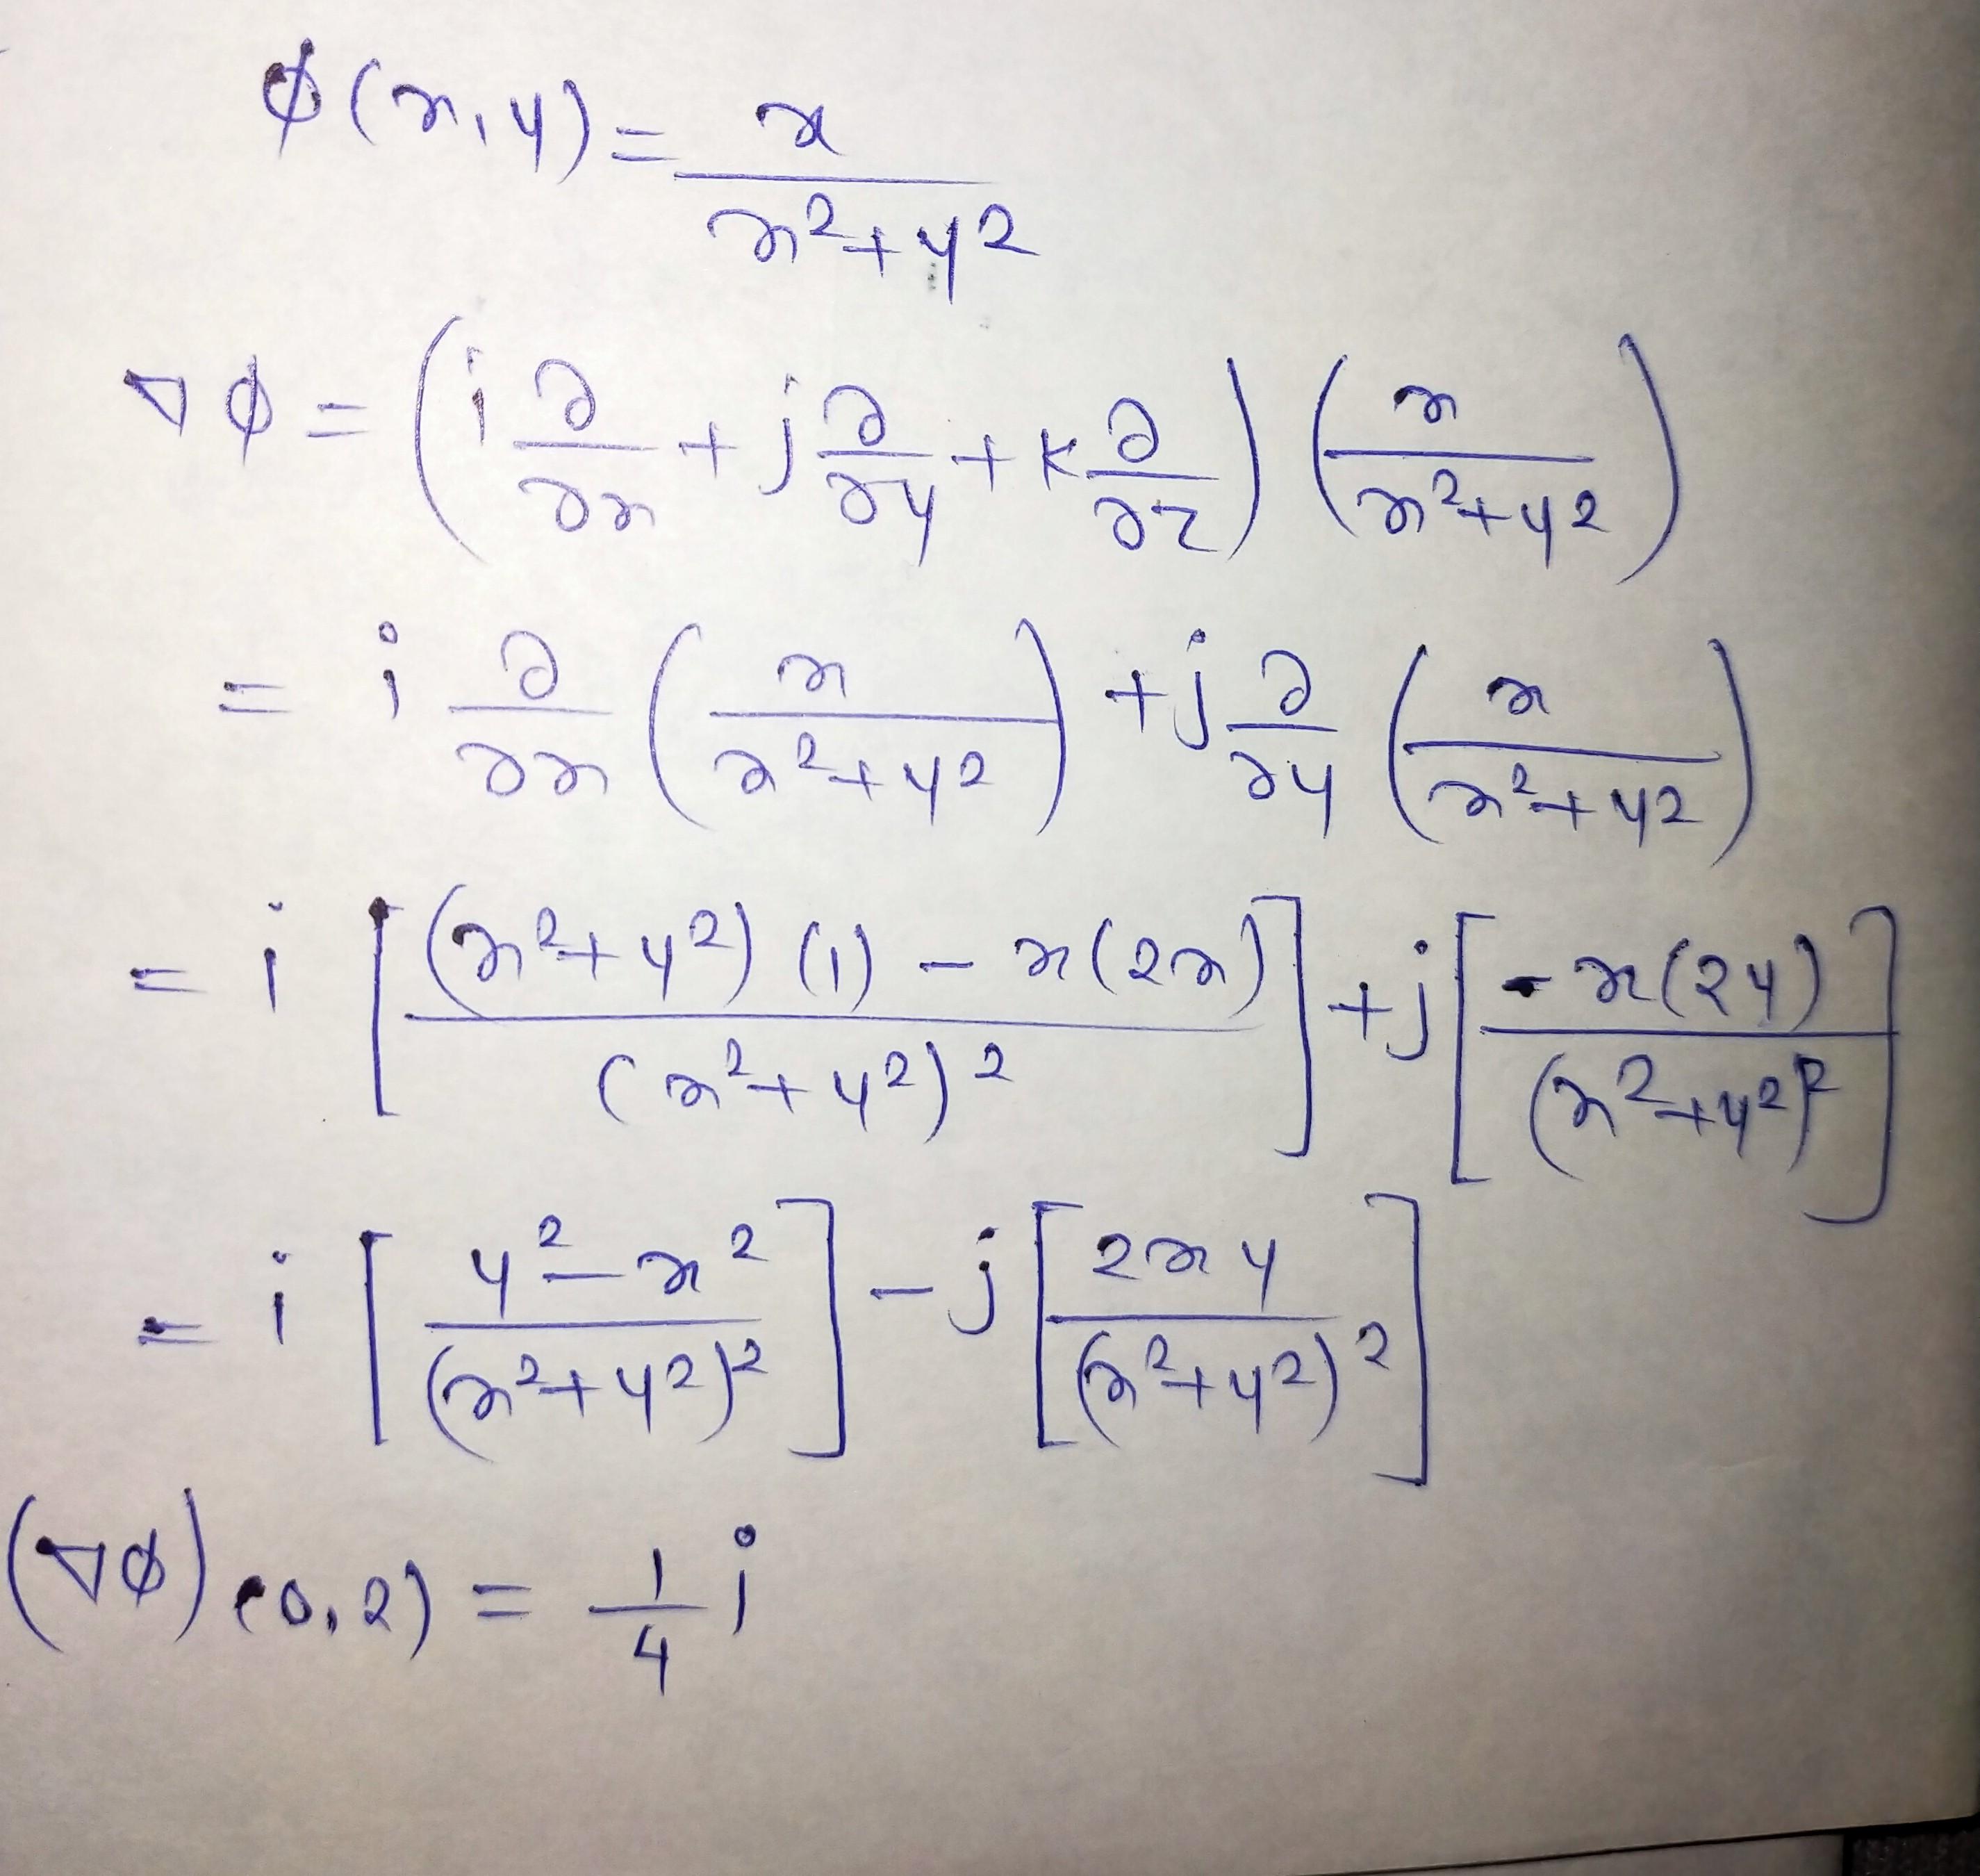 ϕ(x,y) = x/(x²+y²)
∇ϕ = (i ∂/∂x + j ∂/∂y + k ∂/∂z) (x/(x²+y²))
= i ∂/∂x (x/(x²+y²)) + j ∂/∂y (x/(x²+y²))
= i [((x²+y²)(1) - x(2x))/(x²+y²)²] + j [-x(2y)/(x²+y²)²]
= i [(y²-x²)/(x²+y²)²] - j [2xy/(x²+y²)²]
(∇ϕ)(0,2) = 1/4 i